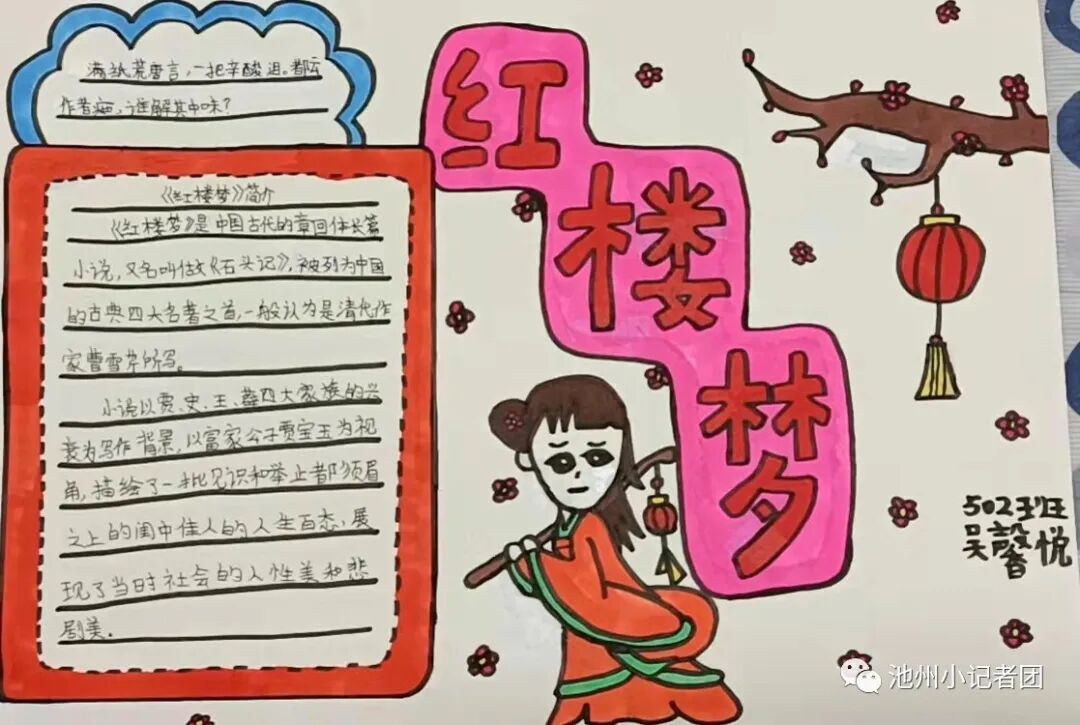 满纸荒唐言，一把辛酸泪。都云
作者痴，谁解其中味？
红楼梦
《红楼梦》简介
《红楼梦》是中国古代的章回体长篇
小说，又名叫做《石头记》，被列为中国
的古典四大名著之首，一般认为是清代作
家曹雪芹所写。
小说以贾、史、王、薛四大家族的兴
衰为写作背景，以富家公子贾宝玉为视
角，描绘了一批见识和举止都须眉
之上的闺中佳人的人生百态，展
现了当时社会的人性美和悲
剧美.
502班
吴馨悦
池州小记者团